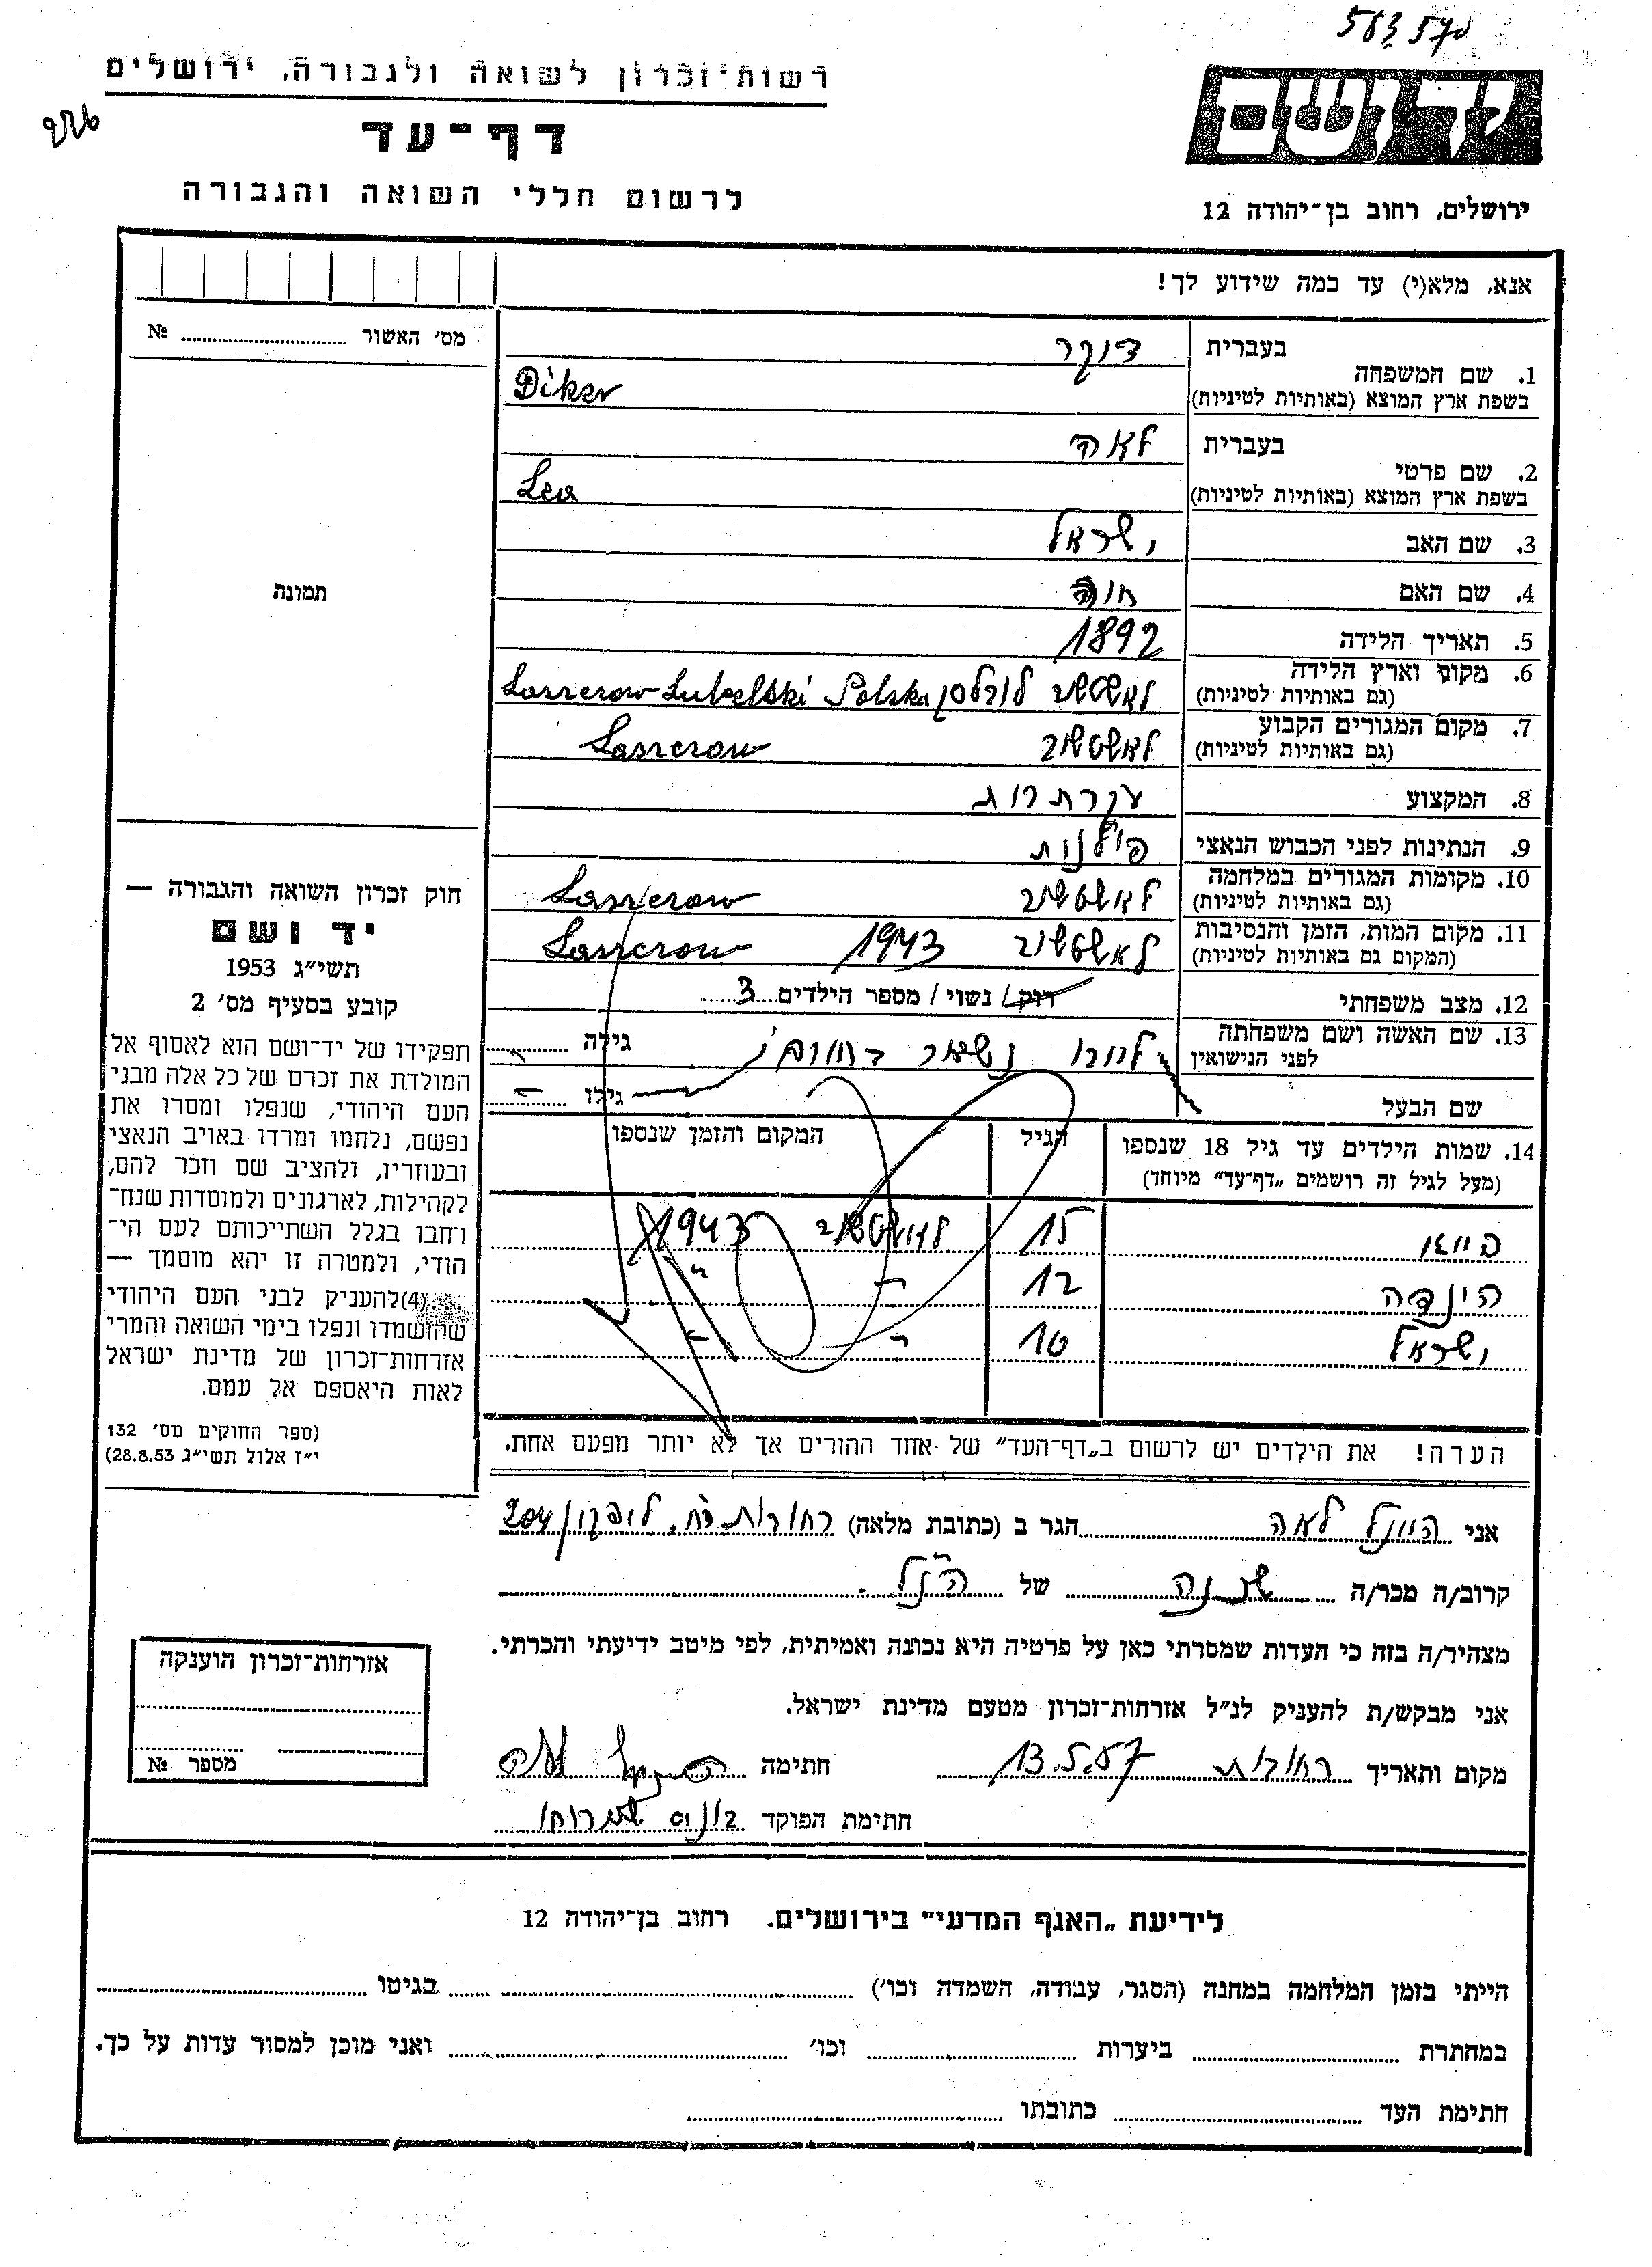 583570
226
רשות־זכרון לשואה ולגבורה, ירושלים
דף־עד
לרשום חללי השואה והגבורה
יד ושם
ירושלים, רחוב בן־יהודה 12
אנא, מלא(י) עד כמה שידוע לך!
מס׳ האשור № ....................
1. שם המשפחה בעברית דיקר
בשפת ארץ המוצא (באותיות לטיניות) Diker
2. שם פרטי בעברית לאה
בשפת ארץ המוצא (באותיות לטיניות) Lea
3. שם האב ישראל
4. שם האם חוה
5. תאריך הלידה 1892
6. מקום וארץ הלידה (גם באותיות לטיניות) לאשטשוב לובלסקי Laszczow Lubelski Polska
7. מקום המגורים הקבוע (גם באותיות לטיניות) לאשטשוב Laszczow
8. המקצוע עקרת בית
9. הנתינות לפני הכבוש הנאצי פולנית
10. מקומות המגורים במלחמה (גם באותיות לטיניות) לאשטשוב Laszczow
11. מקום המות, הזמן והנסיבות (המקום גם באותיות לטיניות) לאשטשוב 1943 Laszczow
12. מצב משפחתי רוק / נשוי / מספר הילדים 3
13. שם האשה ושם משפחתה לפני הנישואין גילה
שם הבעל גילו
14. שמות הילדים עד גיל 18 שנספו (מעל לגיל זה רושמים „דף־עד" מיוחד) הגיל המקום והזמן שנספו
15 לאשטשוב 1943
הינדה 12 " "
ישראל 10 " "
הערה! את הילדים יש לרשום ב„דף־העד" של אחד ההורים אך לא יותר מפעם אחת.
תמונה
חוק זכרון השואה והגבורה —
יד ושם
תשי״ג 1953
קובע בסעיף מס׳ 2
תפקידו של יד־ושם הוא לאסוף אל
המולדת את זכרם של כל אלה מבני
העם היהודי, שנפלו ומסרו את
נפשם, נלחמו ומרדו באויב הנאצי
ובעוזריו, ולהציב שם וזכר להם,
לקהילות, לארגונים ולמוסדות שנח־
רבו בגלל השתייכותם לעם הי־
הודי, ולמטרה זו יהא מוסמך —
(4) להעניק לבני העם היהודי
שהושמדו ונפלו בימי השואה והמרי
אזרחות־זכרון של מדינת ישראל
לאות היאספם אל עמם.
(ספר החוקים מס׳ 132
י״ז אלול תשי״ג 28.8.53)
אני לאה הגר ב (כתובת מלאה) רחובות 204
קרוב/ה מכר/ה שכנה של הנ״ל
מצהיר/ה בזה כי העדות שמסרתי כאן על פרטיה היא נכונה ואמיתית, לפי מיטב ידיעתי והכרתי.
אני מבקש/ת להעניק לנ״ל אזרחות־זכרון מטעם מדינת ישראל.
מקום ותאריך רחובות 13.5.57 חתימה
חתימת הפוקד
אזרחות־זכרון הוענקה
מספר №
לידיעת „האגף המדעי" בירושלים. רחוב בן־יהודה 12
הייתי בזמן המלחמה במחנה (הסגר, עבודה, השמדה וכו׳) .................... בגיטו ....................
במחתרת .................... ביערות .................... וכו׳ .................... ואני מוכן למסור עדות על כך.
חתימת העד .................... כתובתו ....................